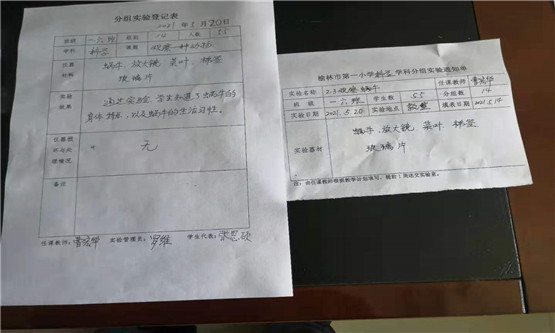 分组实验登记表
2021年5月20日
班级 一.六班 组别 14 人数 55
学科 科学 课题 观察一种动物
仪器材料 蜗牛 放大镜 菜叶 棉签
玻璃片
实验效果 通过实验,学生知道了蜗牛的
身体特征,以及蜗牛的生活习性。
仪器损坏与处理情况 无
备注
任课教师: 实验管理员:罗维 学生代表:
榆林市第一小学科学学科分组实验通知单
实验名称 2.3观察蜗牛 任课教师
班级 一.六班 学生数 55 分组数 14
实验日期 2021.5.20 实验地点 教室 填表日期 2021.5.14
实验器材 蜗牛、放大镜 菜叶 棉签
玻璃片
注:由任课教师根据教学计划填写,提前1周送交实验室。